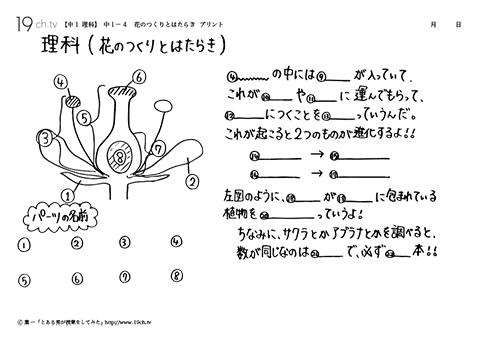 19ch.tv 【中1 理科】 中1-4 花のつくりとはたらき プリント 月 日
理科(花のつくりとはたらき)
⑥
④
⑤
③
⑧
⑦
①
②
パーツの名前
① ② ③ ④
⑤ ⑥ ⑦ ⑧
④ の中には⑨ が入っていて、
これが⑩ や⑪ に運んでもらって、
⑫ につくことを⑬ っていうんだ。
これが起こると2つのものが進化するよ!!
⑭ → ⑮
⑯ → ⑰
左図のように、⑱ が⑲ に包まれている
植物を⑳ っていうよ!
ちなみに、サクラとかアブラナとかを調べると、
数が同じなのは㉑ で、必ず㉒ 本!!
© 葉一「とある男が授業をしてみた」http://www.19ch.tv